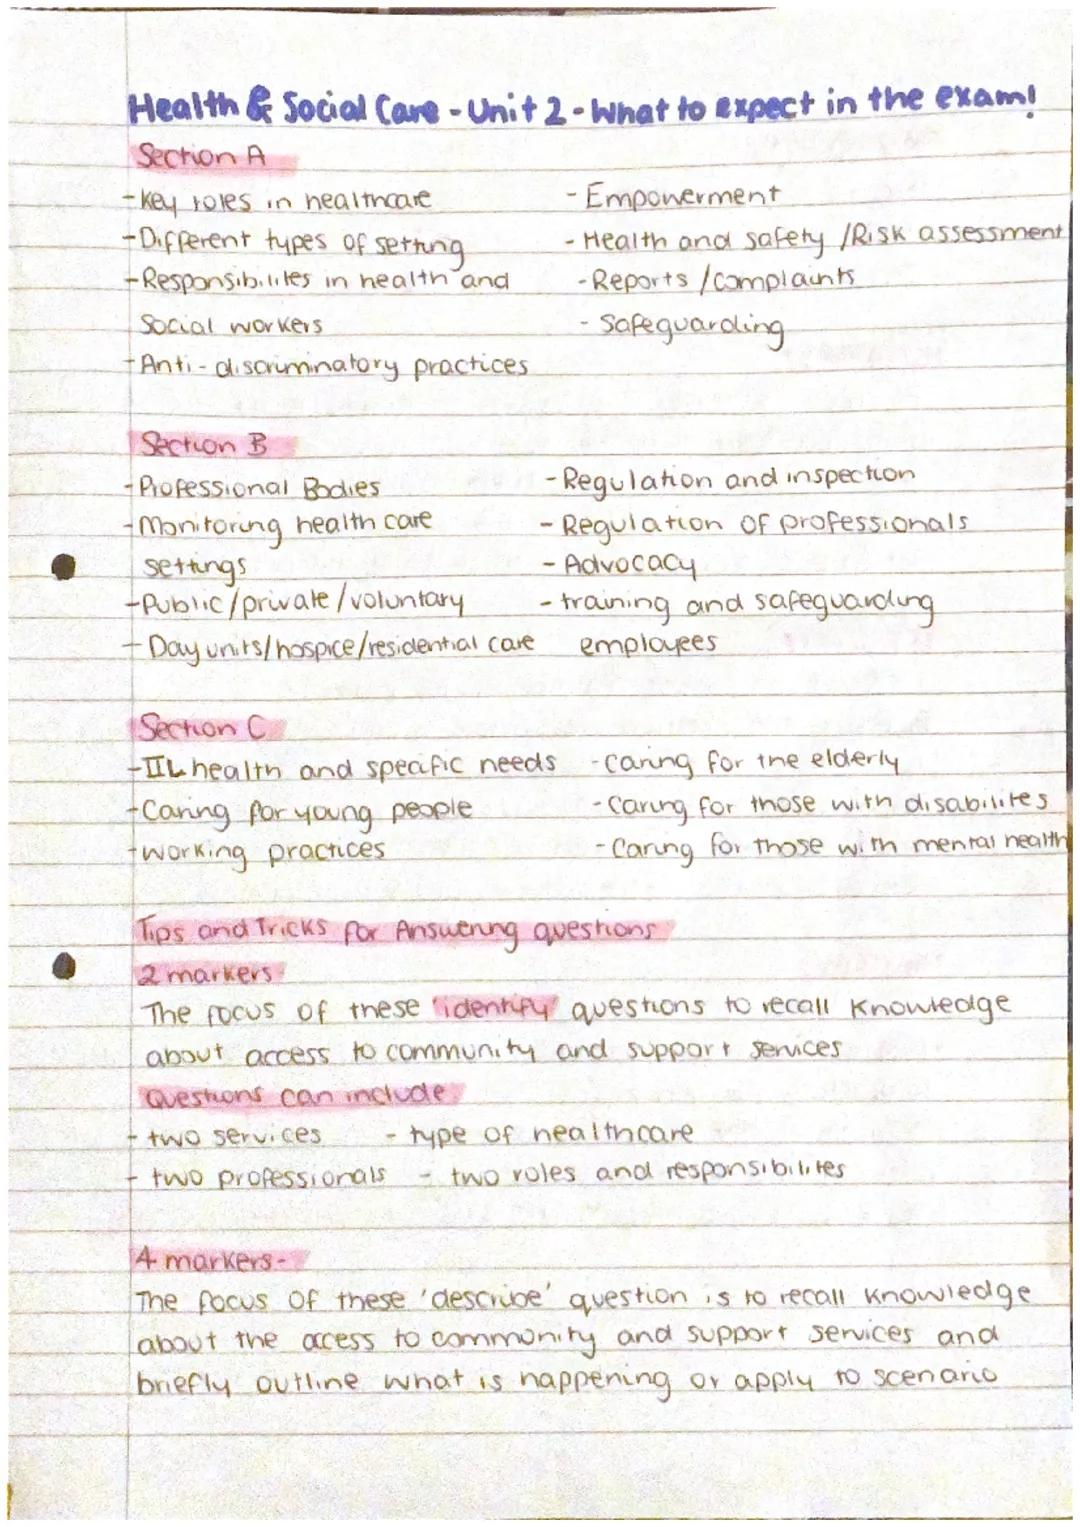 Health & Social Care - Unit 2 - What to expect in the exam!
Section A
- Key roles in healthcare
- Different types of setting
- Responsibilites in health and
Social workers
- Anti - discriminatory practices
- Empowerment
- Health and safety / Risk assessment
- Reports / complaints
- Safeguarding
Section B
- Professional Bodies
- Monitoring health care
settings
- Public/private/voluntary
- Day units/hospice/residential care
- Regulation and inspection
- Regulation of professionals
- Advocacy
- training and safeguarding
employees
Section C
- ILL health and specific needs
- Caring for young people
- working practices
- caring for the elderly
- caring for those with disabilites
- Caring for those with mental health
Tips and Tricks for Answering questions
2 markers
The focus of these 'identify' questions to recall knowledge
about access to community and support services
Questions can include
- two services - type of healthcare
- two professionals - two roles and responsibilites
4 markers-
The focus of these 'describe' question is to recall knowledge
about the access to community and support services and
briefly outline what is happening or apply to scenario